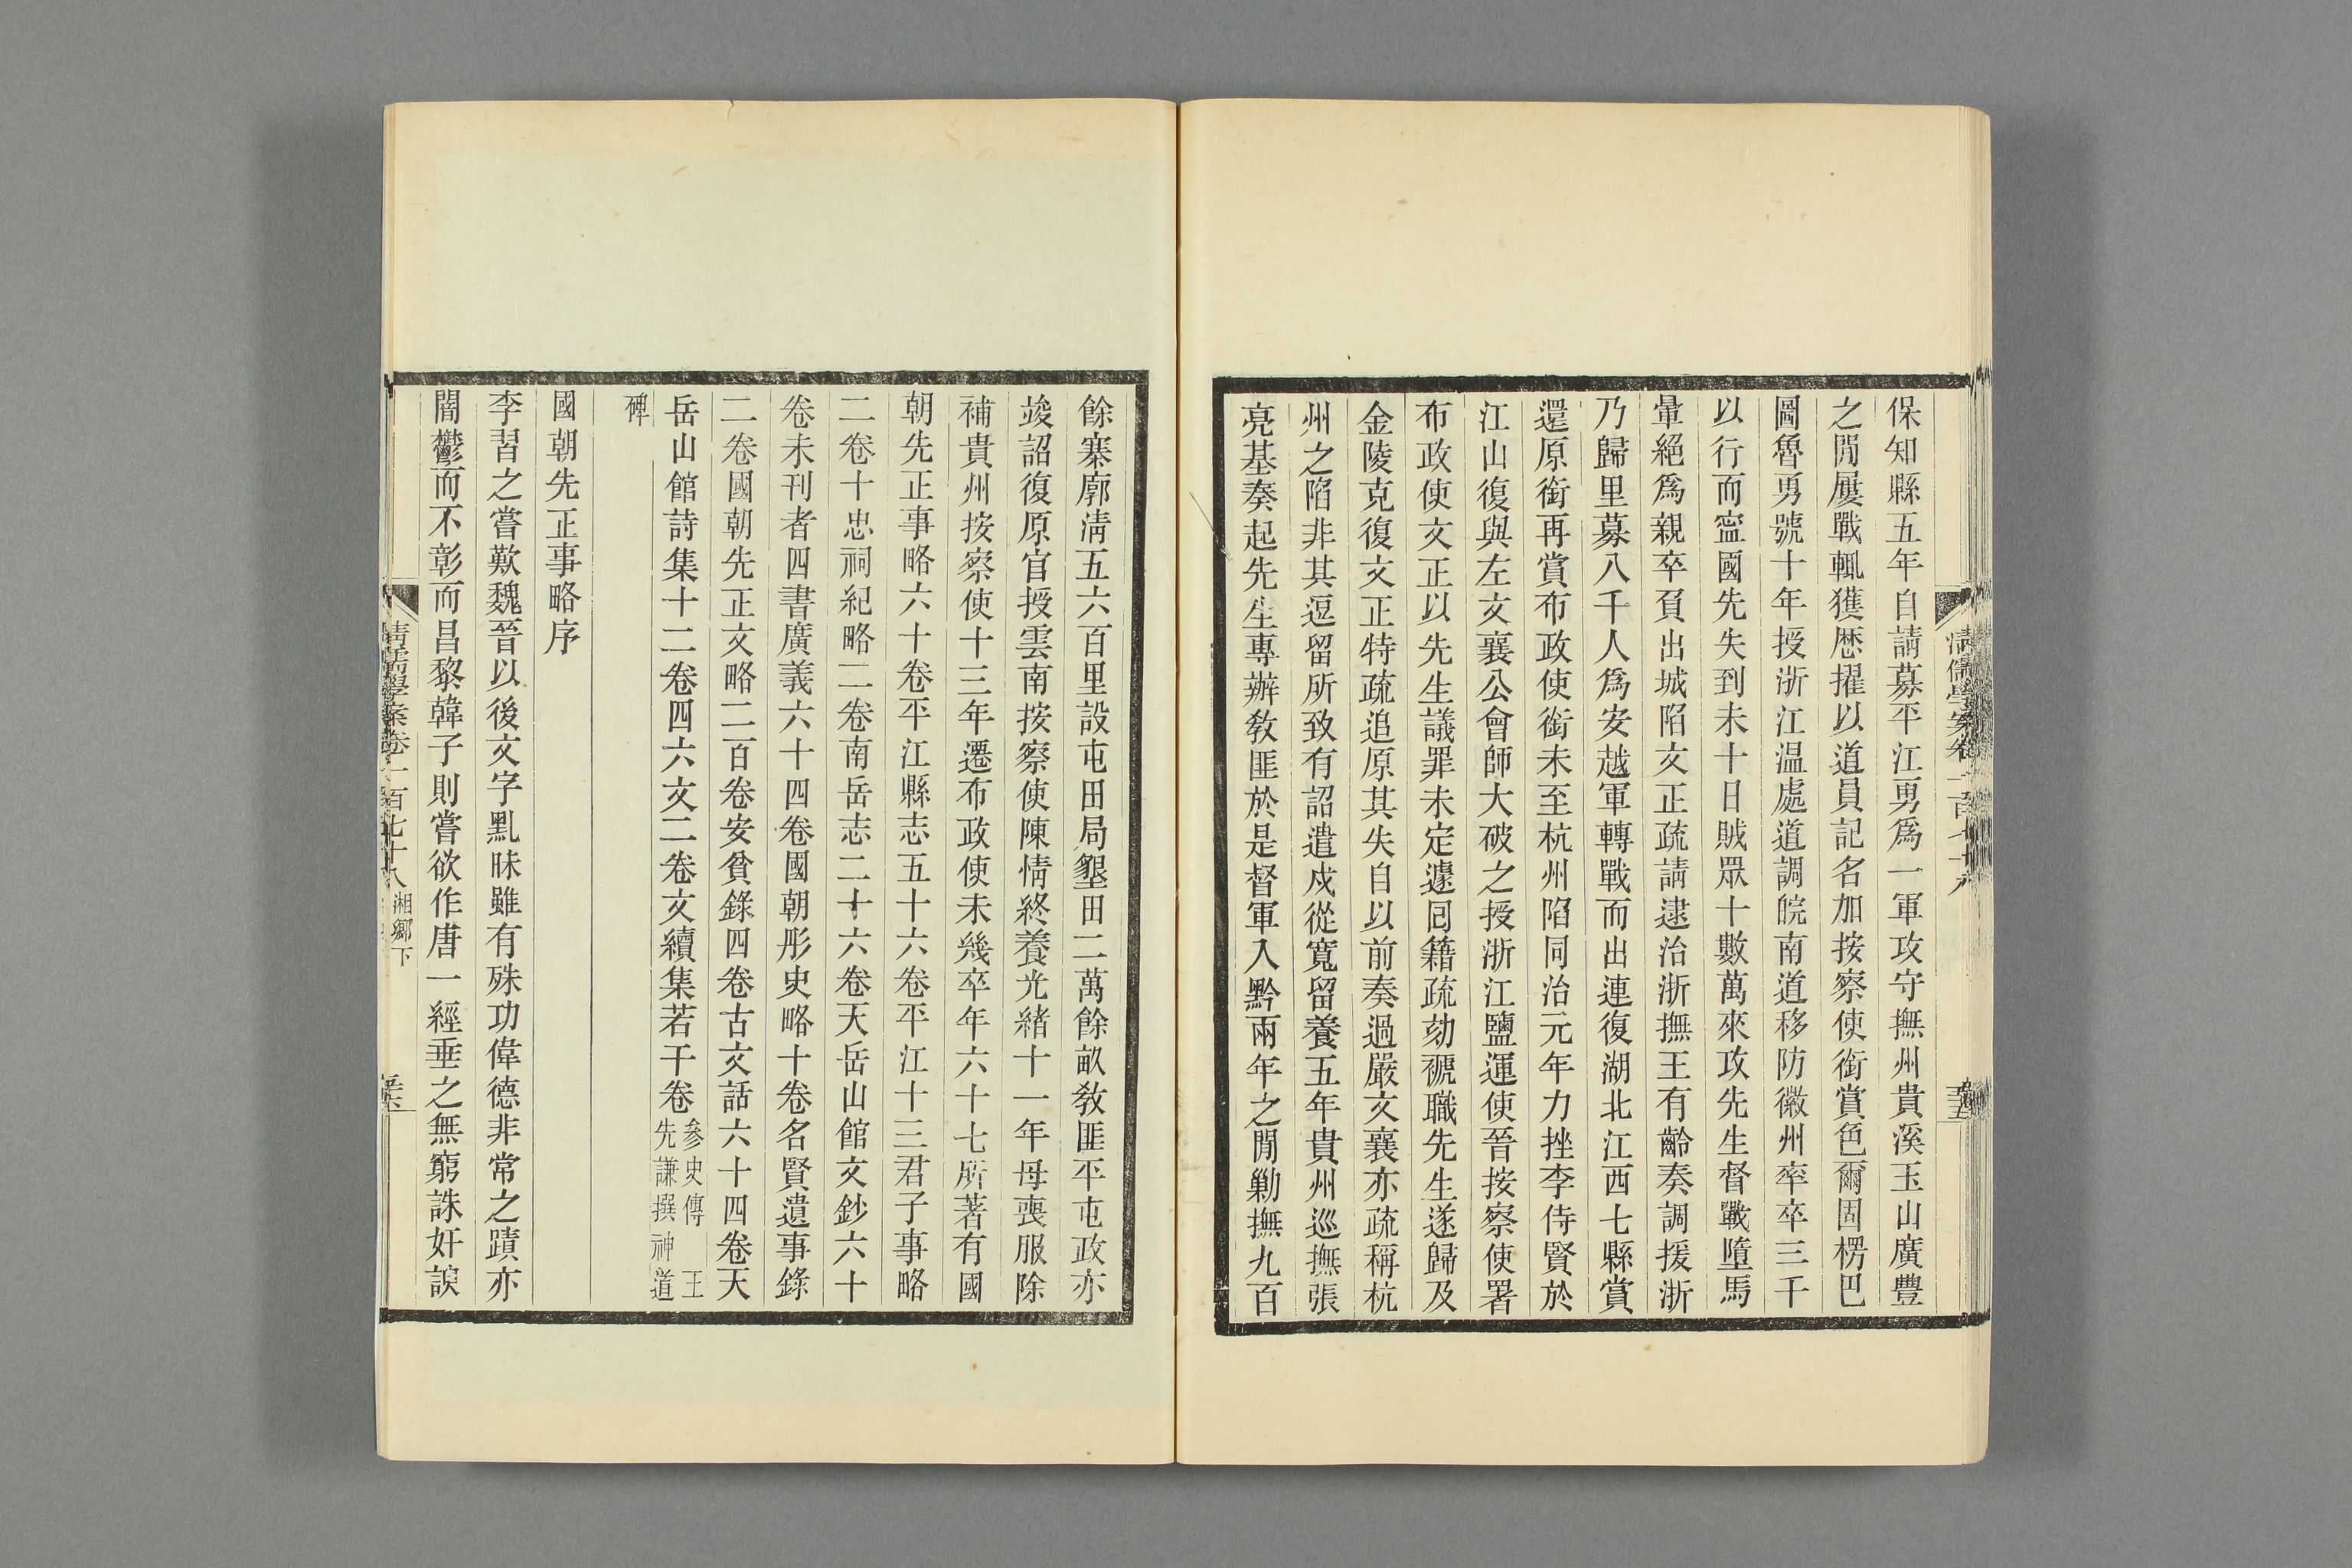 保知縣五年自請募平江勇爲一軍攻守撫州貴溪玉山廣豐
之閒屢戰輒獲歷擢以道員記名加按察使銜賞色爾固楞巴
圖魯勇號十年授浙江溫處道調皖南道移防徽州率卒三千
以行而寍國先失到未十日賊眾十數萬來攻先生督戰墮馬
暈絕爲親卒負出城陷文正疏請逮治浙撫王有齡奏調援浙
乃歸里募八千人爲安越軍轉戰而出連復湖北江西七縣賞
還原銜再賞布政使銜未至杭州陷同治元年力挫李侍賢於
江山復與左文襄公會師大破之授浙江鹽運使晉按察使署
布政使文正以先生議罪未定遽回籍疏劾褫職先生遂歸及
金陵克復文正特疏追原其失自以前奏過嚴文襄亦疏稱杭
州之陷非其逗留所致有詔遣戍從寬留養五年貴州巡撫張
亮基奏起先生專辦敎匪於是督軍入黔兩年之閒勦撫九百
清儒學案卷一百七十八
三五
餘寨廓淸五六百里設屯田局墾田二萬餘畝敎匪平屯政亦
竣詔復原官授雲南按察使陳情終養光緖十一年母喪服除
補貴州按察使十三年遷布政使未幾卒年六十七所著有國
朝先正事略六十卷平江縣志五十六卷平江十三君子事略
二卷十忠祠紀略二卷南岳志二十六卷天岳山館文鈔六十
卷未刊者四書廣義六十四卷國朝彤史略十卷名賢遺事錄
二卷國朝先正文略二百卷安貧錄四卷古文話六十四卷天
岳山館詩集十二卷四六文二卷文續集若干卷參史傳 王
先謙撰神道
碑
國朝先正事略序
李習之嘗歎魏晉以後文字䵝昧雖有殊功偉德非常之蹟亦
闇鬱而不彰而昌黎韓子則嘗欲作唐一經垂之無窮誅奸諛
清儒學案卷一百七十八 湘鄉下